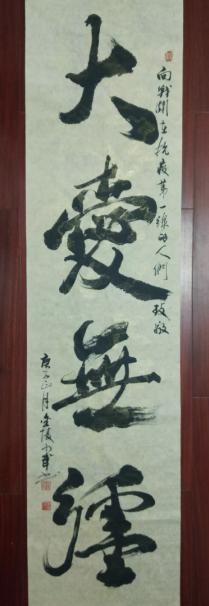 向戰鬪在抗疫第一線的人們 致敬
大愛無疆
庚子正月金陵